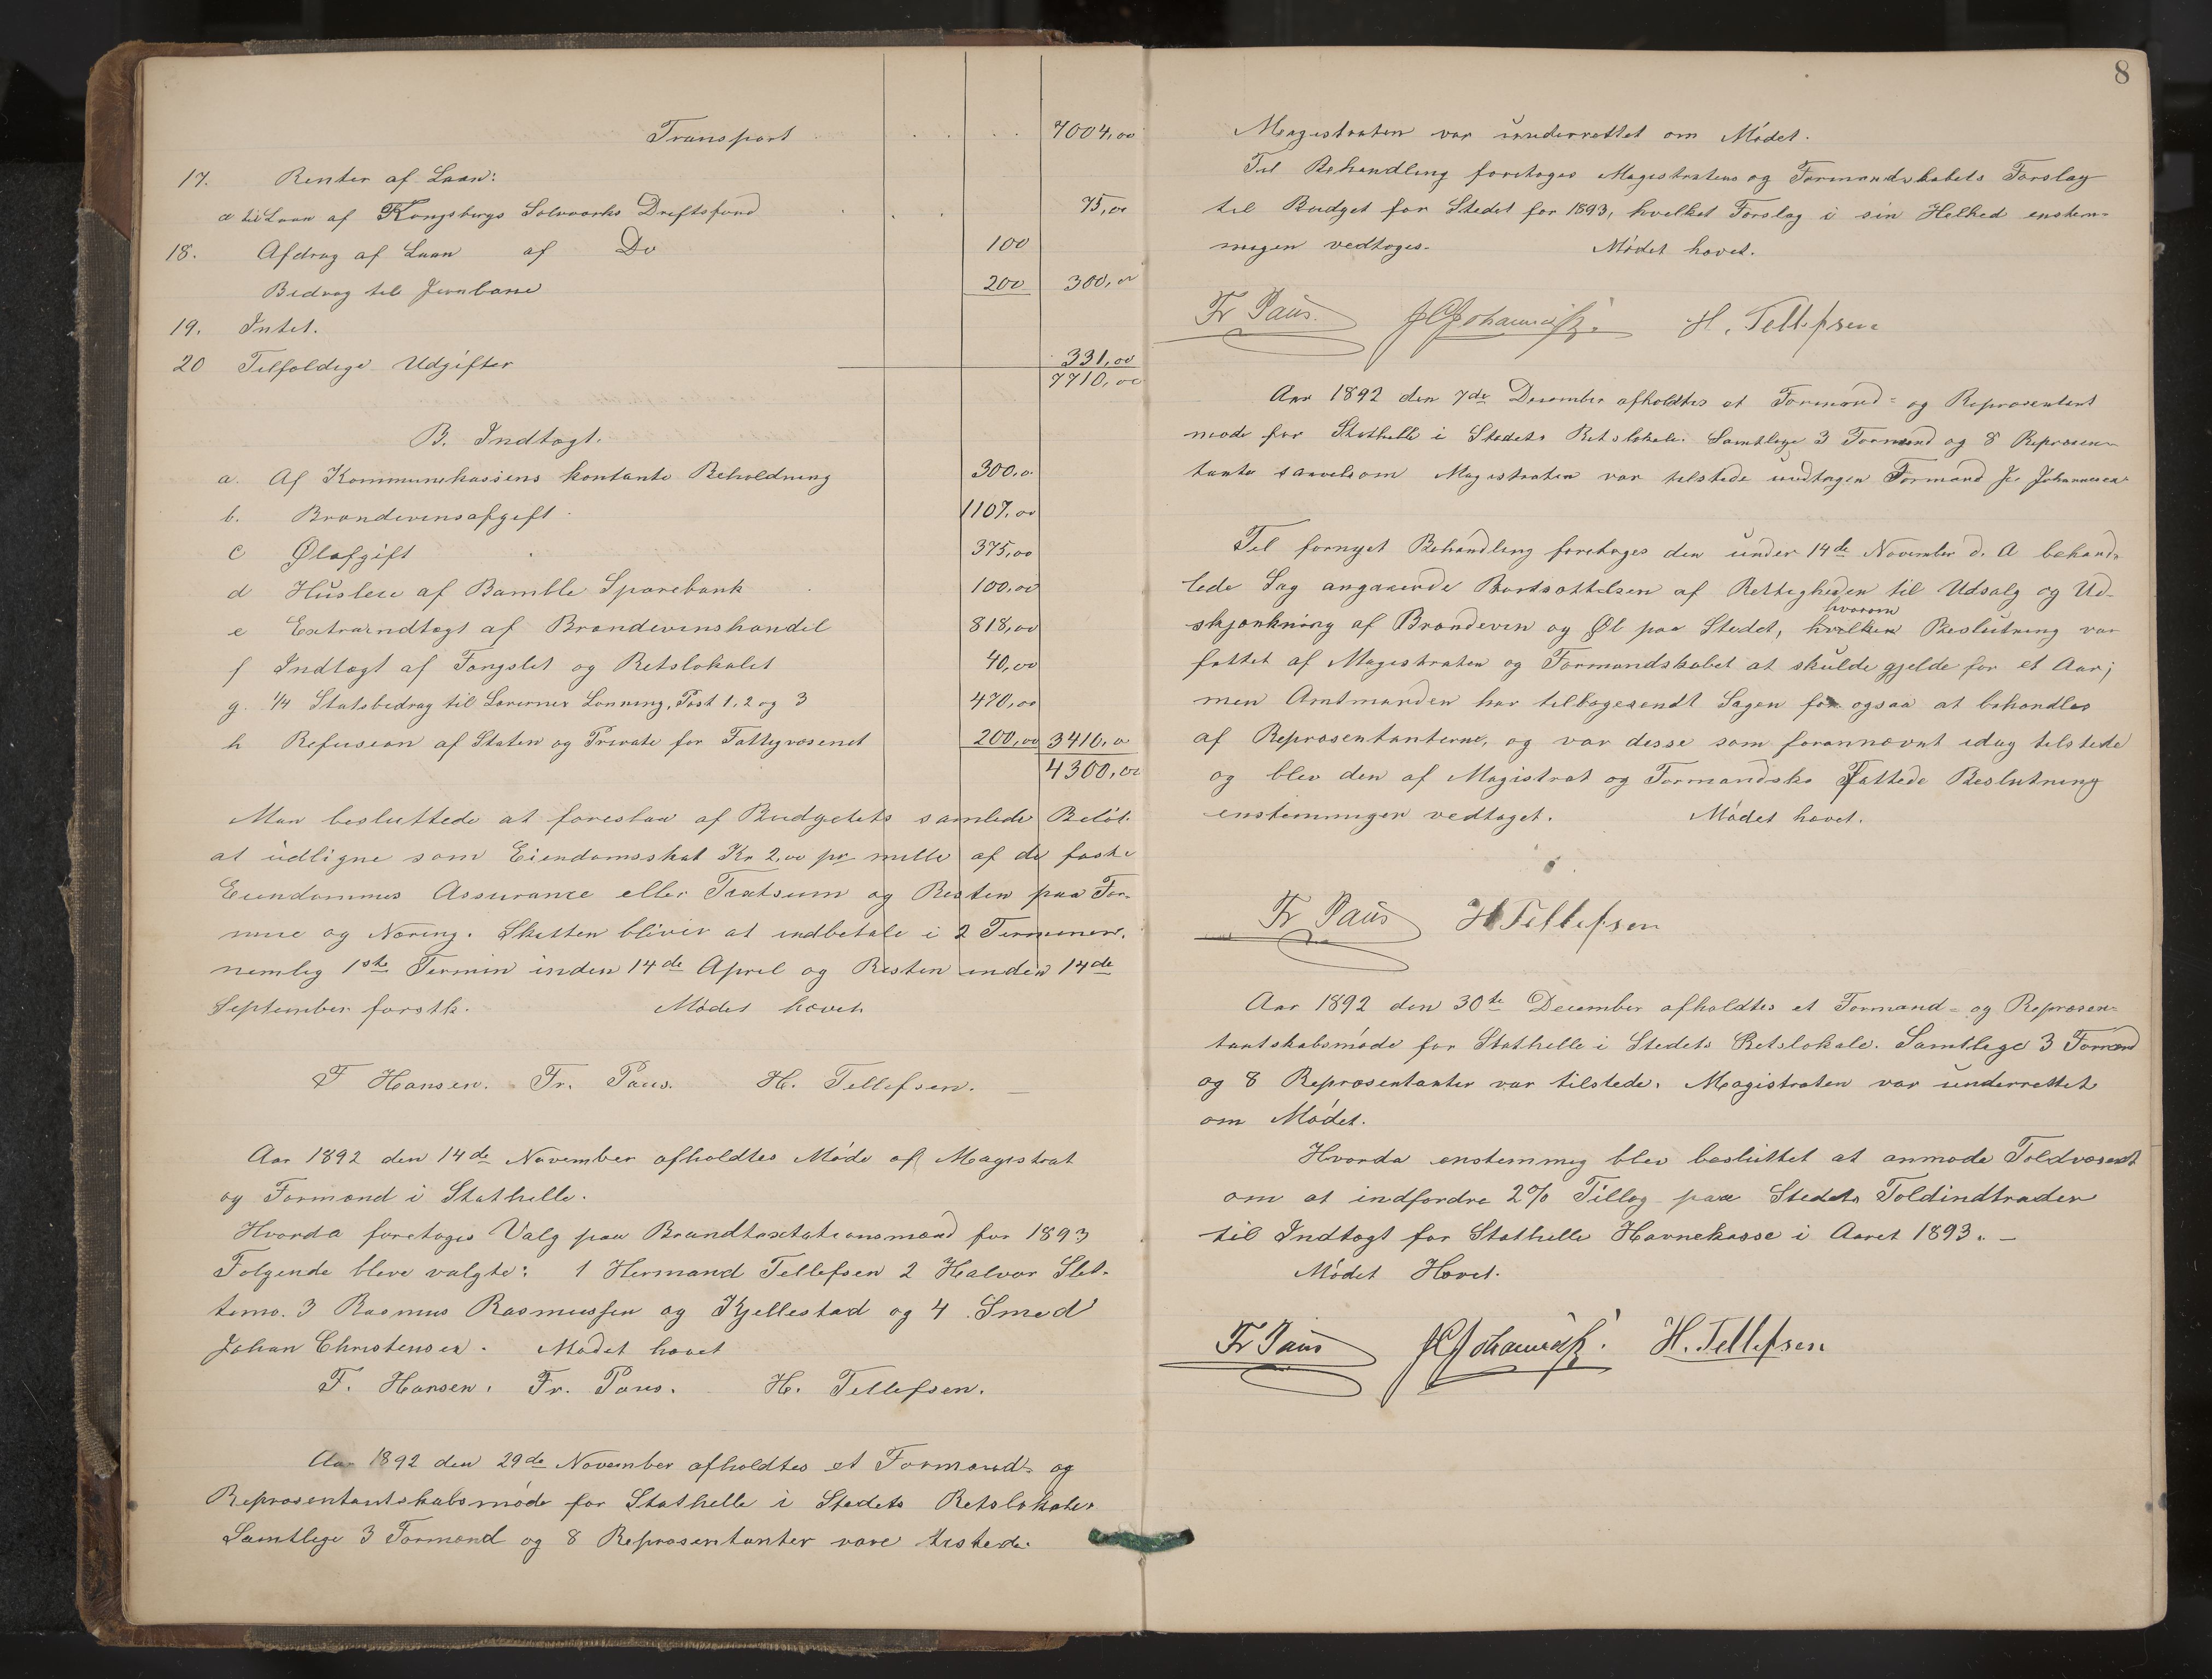 Transport . . . . 7004,00
17. Renter af Laan:
a til Laan af Kongsbergs Sølvværks Driftsfond . . . 75,00
18. Afdrag af Laan af Do 100
Bidrag til Jernbane 200 300,00
19. Intet.
20 Tilfældige Udgifter 331,00
7710,00
B. Indtægt.
a. Af Kommunekassens kontante Beholdning 300,00
b. Brændevinsafgift 1107,00
c Ølafgift 375,00
d Husleie af Bamble Sparebank 100,00
e Extraindtægt af Brændevinshandel 818,00
f Indtægt af Fængslet og Retslokalet 40,00
g. 1/4 Statsbidrag til Lærernes Lønning, Post 1, 2 og 3 470,00
h Refusion af Staten og Private for Fattigvæsenet 200,00 3410,00
4300,00
Man besluttede at foreslaa af Budgettets samlede Beløb
at udligne som Eiendomsskat Kr 2,00 pr mille af de faste
Eiendommes Assurance eller Taxtsum og Resten paa For-
mue og Næring. Skatten bliver at indbetale i 2 Terminer,
nemlig 1ste Termin inden 14de April og Resten inden 14de
September førstk. Mødet hævet
F Hansen. Fr. Paus. H. Tellefsen.
Aar 1892 den 14de November afholdtes Møde af Magistrat
og Formænd i Stathelle.
Hvorda foretoges Valg paa Brandtaxtationsmænd for 1893
Følgende bleve valgte: 1 Hermand Tellefsen 2 Halvor Slet-
temo. 3 Rasmus Rasmussen og Kjellestad og 4. Smed
Johan Christensen. Mødet hævet
F. Hansen. Fr. Paus. H. Tellefsen.
Aar 1892 den 29de November afholdtes et Formænd- og
Repræsentantskabsmøde for Stathelle i Stedets Retslokale.
Samtlige 3 Formænd og 8 Repræsentanter vare tilstede.
8
Magistraten var underrettet om Mødet.
Til Behandling foretoges Magistratens og Formandskabets Forslag
til Budget for Stedet for 1893, hvilket Forslag i sin Helhed enstem-
migen vedtoges. Mødet hævet.
Fr Paus. H. Tellefsen
Aar 1892 den 7de December afholdtes et Formænd- og Repræsentant
møde for Stathelle i Stedets Retslokale. Samtlige 3 Formænd og 8 Repræsen-
tanter saavelsom Magistraten var tilstede undtagen Formand Johannesen
Til fornyet Behandling foretoges den under 14de November d. A behand-
lede Sag angaaende Bortsættelsen af Rettigheden til Udsalg og Ud-
skjænkning af Brændevin og Øl paa Stedet, hvilken hvorom Beslutning var
fattet af Magistraten og Formandskabet at skulde gjelde for et Aar;
men Amtmanden har tilbagesendt Sagen for ogsaa at behandles
af Repræsentanterne, og var desse som forannævnt idag tilstede
og blev den af Magistrat og Formandsk. Fattede Beslutning
enstemmigen vedtaget. Mødet hævet.
Fr Paus H Tellefsen
Aar 1892 den 30te December afholdtes et Formand- og Repræsen-
tantskabsmøde for Stathelle i Stedets Retslokale. Samtlige 3 Formænd
og 8 Repræsentanter var tilstede. Magistraten var underrettet
om Mødet.
Hvorda enstemmig blev besluttet at anmode Toldvæsenet
om at indfordre 2% Tillæg paa Stedets Toldindtrader
til Indtægt for Stathelle Havnekasse i Aaret 1893. –
Mødet Hævet.
Fr Paus H. Tellefsen